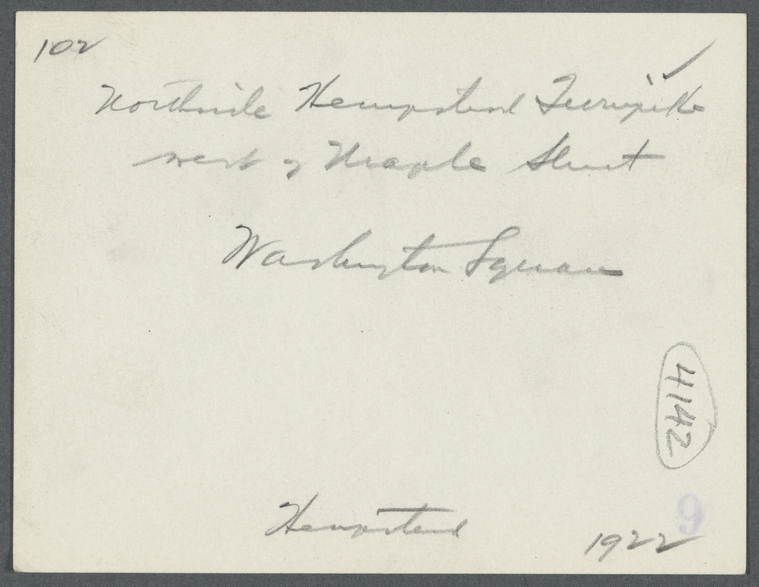 102
Northside Hempstead Turnpike
west of Maple Street
Washington Square
4142
Hempstead
9
1922